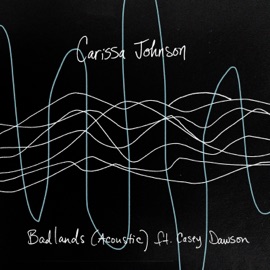 Carissa Johnson
Badlands (Acoustic) ft. Casey Dawson